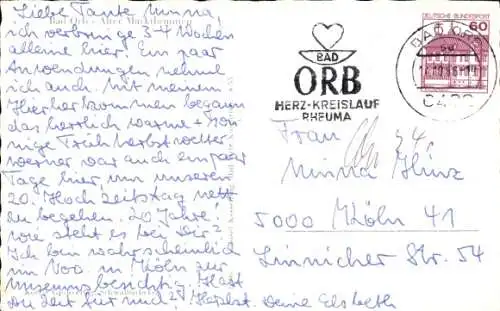 Bad Orb - Alter Musikbrunnen
Liebe Tante Minna,
ich verbringe 3-4 Wochen
alleine hier. Ein paar
Anwendungen nehme
ich auch. Mit meinem
Hierherkommen begann
das herrlich warme + son-
nige Frühherbstwetter
Werner war auch ein paar
Tage hier, um unseren
20. Hochzeitstag nett
zu begehen. 20 Jahre!
Wie steht es bei Dir?
Ich bin wahrscheinlich
im Nov. in Köln zur
Museumsbesichtig. Hast
du Zeit für mich? Herzlichst. Deine Elsbeth
BAD
ORB
HERZ-KREISLAUF
RHEUMA
DEUTSCHE BUNDESPOST
60
BAD ORB
Frau
Minna Hinz
5000 Köln 41
Linnicher Str. 54